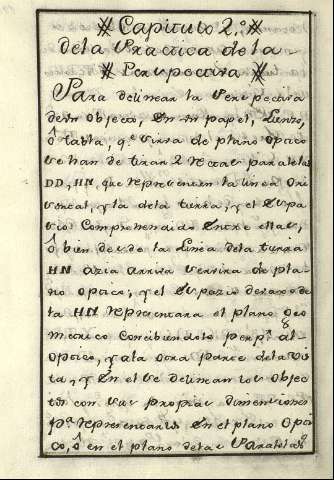 Capitulo 2.º
dela Practica dela
Perspectiva
Para delinear la Perspectiva
deun Objecto, En un papel, Lienzo,
ô tabla, q.e sirva de plano optico
se han de tirar 2 rectas paralelas
DD, HN, que representen la linea Ori
sontal, y la dela tierra, y el Espa
cio Comprehendido Entre ellas,
ô bien desde la Linea dela tierra
HN azia arriva servira de pla
no optico; y el Espazio devaxo de
la HN representara el plano geo
metrico Concibiendolo perp.r al
optico, y ala otra parte dela vis
ta, y En el se delinean los objec
tos con sus propias dimensiones
p.a representarlos En el plano Opti
co, ô en el plano delas Paralelas